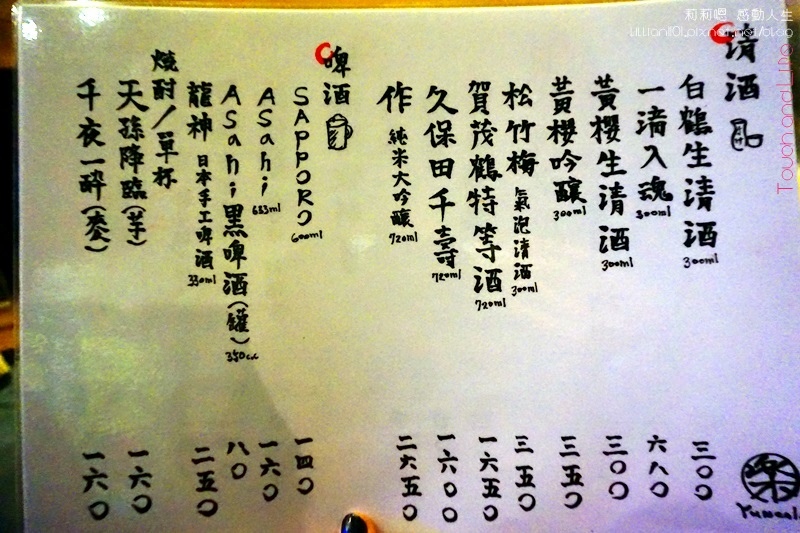 莉莉嗯 感動人生
Touch and Life
清酒
白鶴生清酒 300ml 三〇〇
一清入魂 300ml 六八〇
黃櫻生清酒 300ml 三〇〇
黃櫻吟釀 300ml 三五〇
松竹梅 氣泡清酒 300ml 三五〇
賀茂鶴特等酒 720ml 一六五〇
久保田千壽 720ml 一六〇〇
作 純米大吟釀 720ml 二六五〇
啤酒
SAPPORO 600ml 一四〇
ASahi 633ml 一六〇
ASahi黑啤酒(罐) 350cc 八〇
龍神 日本手工啤酒 330ml 二五〇
燒酎/單杯
天孫降臨(芋) 一六〇
千夜一醉(麥) 一六〇
楽